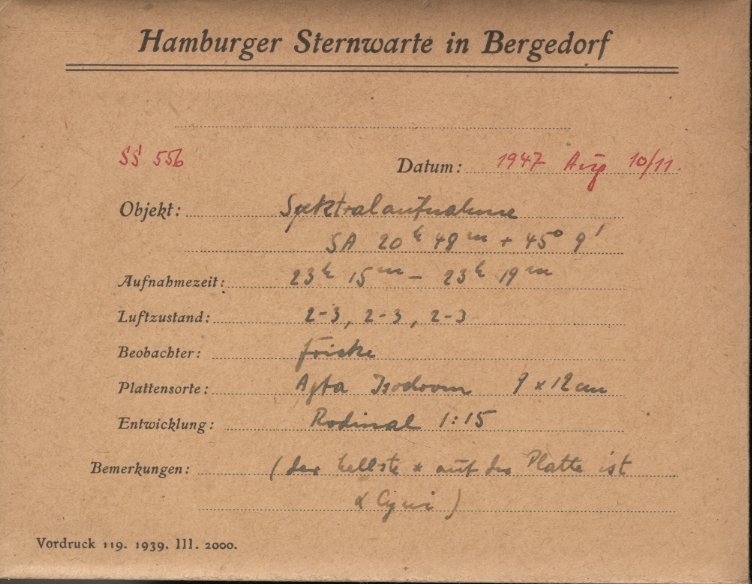 Hamburger Sternwarte in Bergedorf
SS 556 Datum: 1947 Aug 10/11.
Objekt: Spektralaufnahme
SA 20h 49m + 45° 9'
Aufnahmezeit: 23h 15m – 23h 19m
Luftzustand: 2-3, 2-3, 2-3
Beobachter:
Plattensorte: Agfa Isochrom 9 x 12 cm
Entwicklung: Rodinal 1:15
Bemerkungen: (der hellste * auf der Platte ist
α Cygni)
Vordruck 119. 1939. III. 2000.